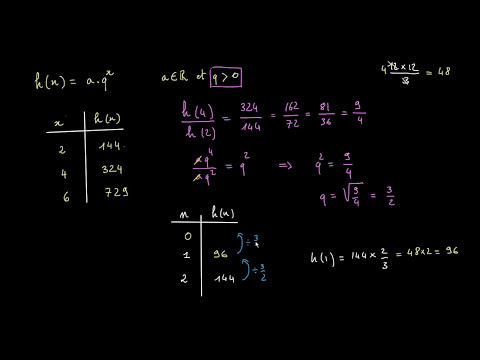 h(x) = a·q^x
a∈ℝ et q > 0
4 48 × 12 / 3 = 48
x h(x)
2 144
4 324
6 729
h(4)/h(2) = 324/144 = 162/72 = 81/36 = 9/4
aq^4/aq^2 = q^2 ⇒ q^2 = 9/4
q = √(9/4) = 3/2
x h(x)
0
÷ 3
1 96
÷ 3/2
2 144
h(1) = 144 × 2/3 = 48×2 = 96